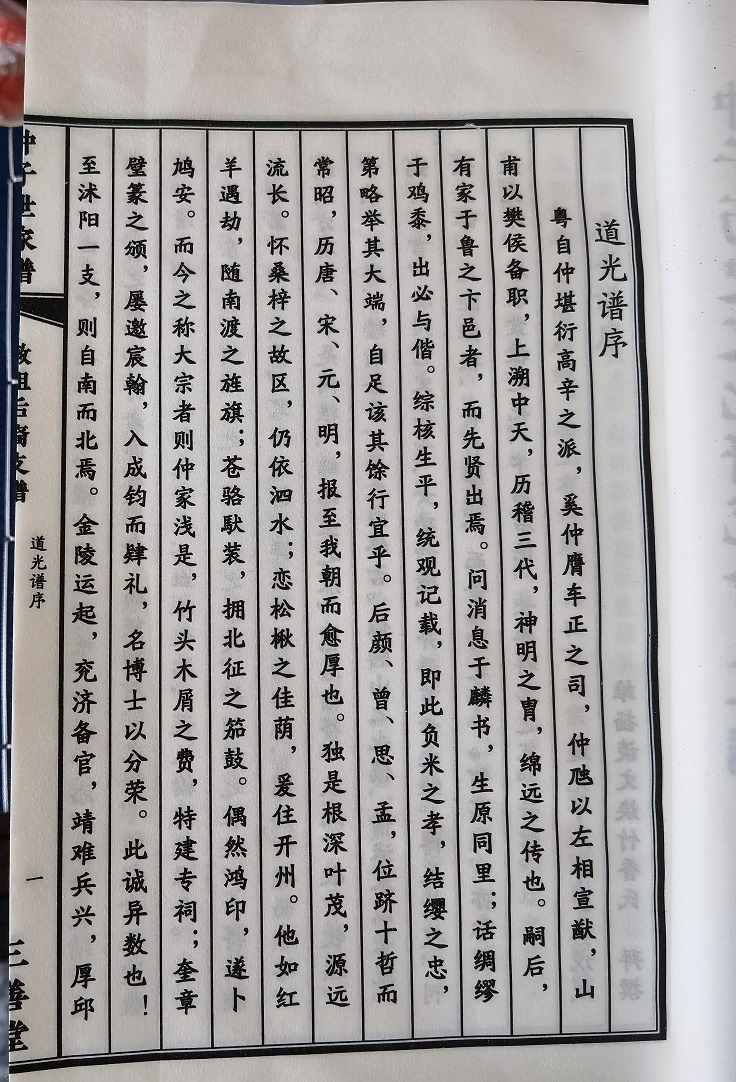 道光谱序
粤自仲堪衍高辛之派，奚仲膺车正之司，仲虺以左相宣猷，山
甫以樊侯备职，上溯中天，历稽三代，神明之胄，绵远之传也。嗣后，
有家于鲁之卞邑者，而先贤出焉。问消息于麟书，生原同里；话绸缪
于鸡黍，出必与偕。综核生平，统观记载，即此负米之孝，结缨之忠，
第略举其大端，自足该其馀行宜乎。后颜、曾、思、孟，位跻十哲而
常昭，历唐、宋、元、明，报至我朝而愈厚也。独是根深叶茂，源远
流长。怀桑梓之故区，仍依泗水；恋松楸之佳荫，爰住开州。他如红
羊遇劫，随南渡之旌旗；苍骆馱装，拥北征之笳鼓。偶然鸿印，遂卜
鸠安。而今之称大宗者则仲家浅是，竹头木屑之费，特建专祠；奎章
璧篆之颁，屡邀宸翰，入成钧而肄礼，名博士以分荣。此诚异数也！
至沭阳一支，则自南而北焉。金陵运起，兖济备官，靖难兵兴，厚邱
仲子世家谱
后裔支谱
道光谱序
一
三善堂